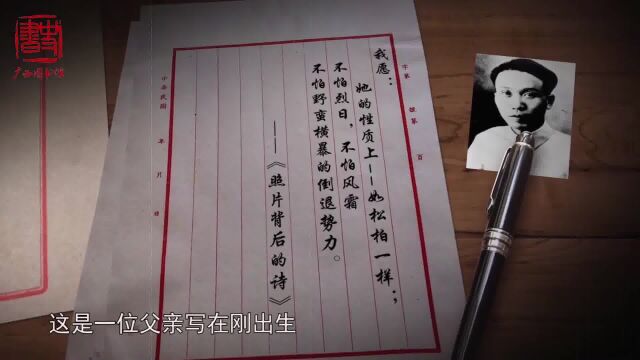 广西图书馆
我愿：
她的性质上——如松柏一样；
不怕烈日，不怕风霜
不怕野蛮横暴的倒退势力。
——《照片背后的诗》
中华民国
年
月
这是一位父亲写在刚出生